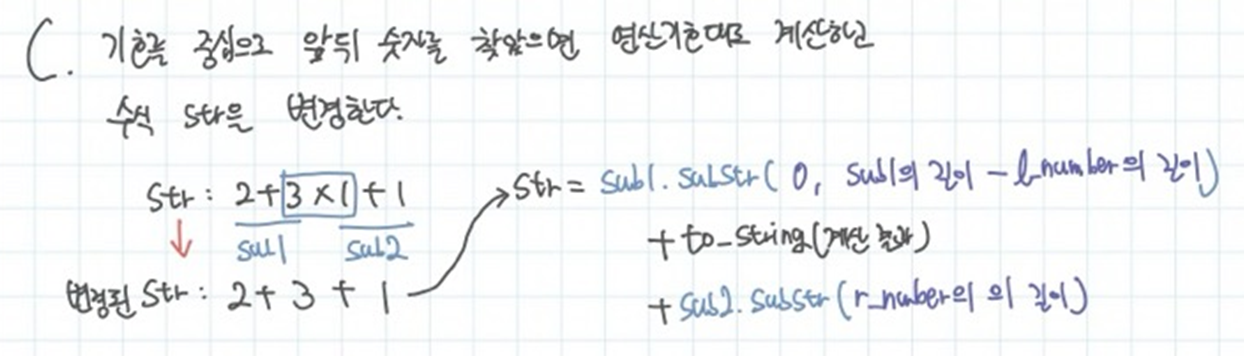 C. 기호를 중심으로 앞뒤 숫자를 찾았으면 연산기호대로 계산하고
수식 str을 변경한다.
str : 2+3×1+1
sub1 sub2
변경된 str : 2+3+1
str = sub1.substr(0, sub1의 길이 - l_number의 길이)
+ to_string(계산 결과)
+ sub2.substr(r_number의 의 길이)